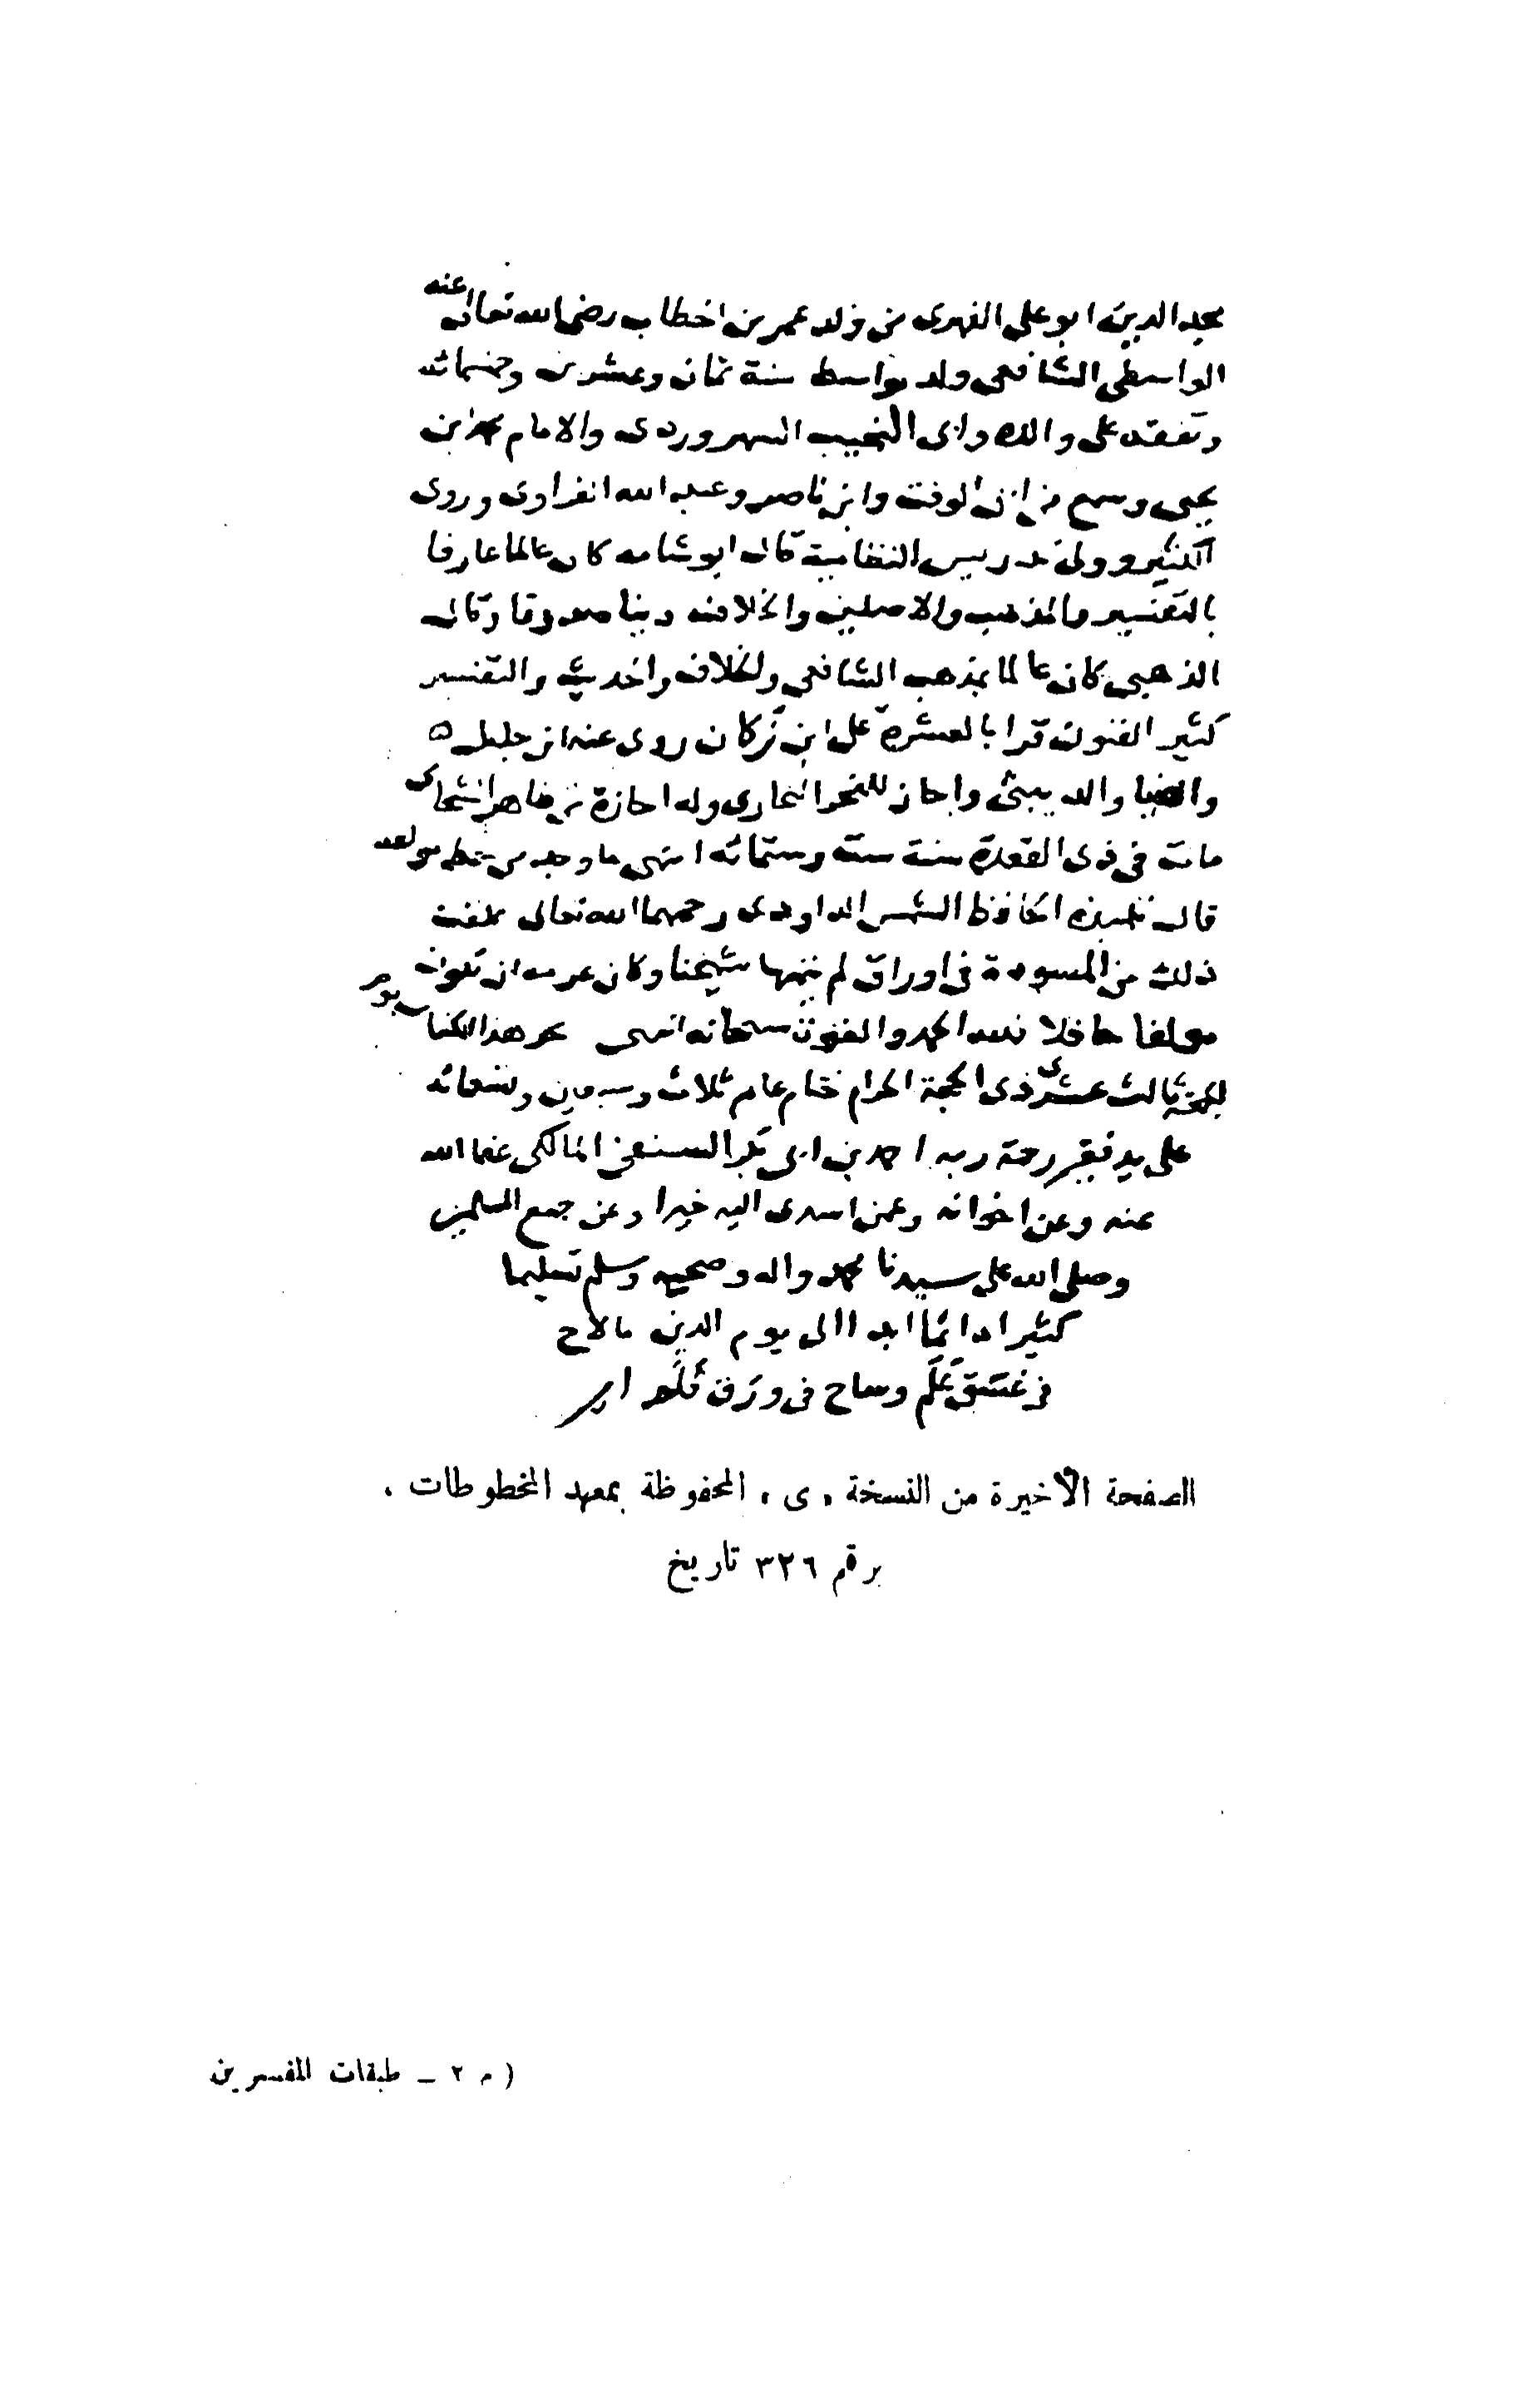 مجد الدين ابو على الفهرى من ولد عمر بن الخطاب رضى الله تعالى عنه
الواسطى الشافعى ولد بواسط سنة ثمان وعشرين وخمسمائه
وتفقه على والده وابى النجيب السهروردى والامام محمد بن
يحيى وسمع من ابى الوقت وابن ناصر وعبد الله الفراوى وروى
الكثير وولى تدريس النظامية قال ابو شامه كان عالما عارفا
بالتفسير والمذهب والاصلين والخلاف دينا صدوقا وقال
الذهبى كان عالما بمذهب الشافعى والخلاف والحديث والتفسير
كثير الفنون قرا بالعشرة على ابن تركان روى عنه ابن خليل
والضيا والدبيثى واجاز للفخر البخارى وله اجازة من زاهر الشحامى
مات فى ذى القعدة سنة ستة وستمائه انتهى ما وجد من خط مولفه
قال تلميذه الحافظ الشمس الداودى رحمهما الله تعالى علقت
ذلك من المسودة فى اوراق لم يتمها شيخنا وكان عزمه ان تكون
مولفا حافلا لله الحمد والعون سبحانه انتهى نجز هذا الكتاب يوم
الجمعة ثالث عشرى ذى الحجة الحرام ختام عام ثلاث وسبعين وتسعمائه
على يد فقير رحمة ربه احمد بن ابى بكر السنفى المالكى عفا الله
عنه وعن اخوانه وعمن اسدى اليه خيرا وعن جميع المسلمين
وصلى الله على سيدنا محمد واله وصحبه وسلم تسليما
كثيرا دائما ابدا الى يوم الدين ما لاح
فى غسق علم وساح فى ورق قلم امين
الصفحة الأخيرة من النسخة ، ى ، المحفوظة بمعهد المخطوطات .
برقم ٣٢٦ تاريخ
( م ٢ – طبقات المفسرين